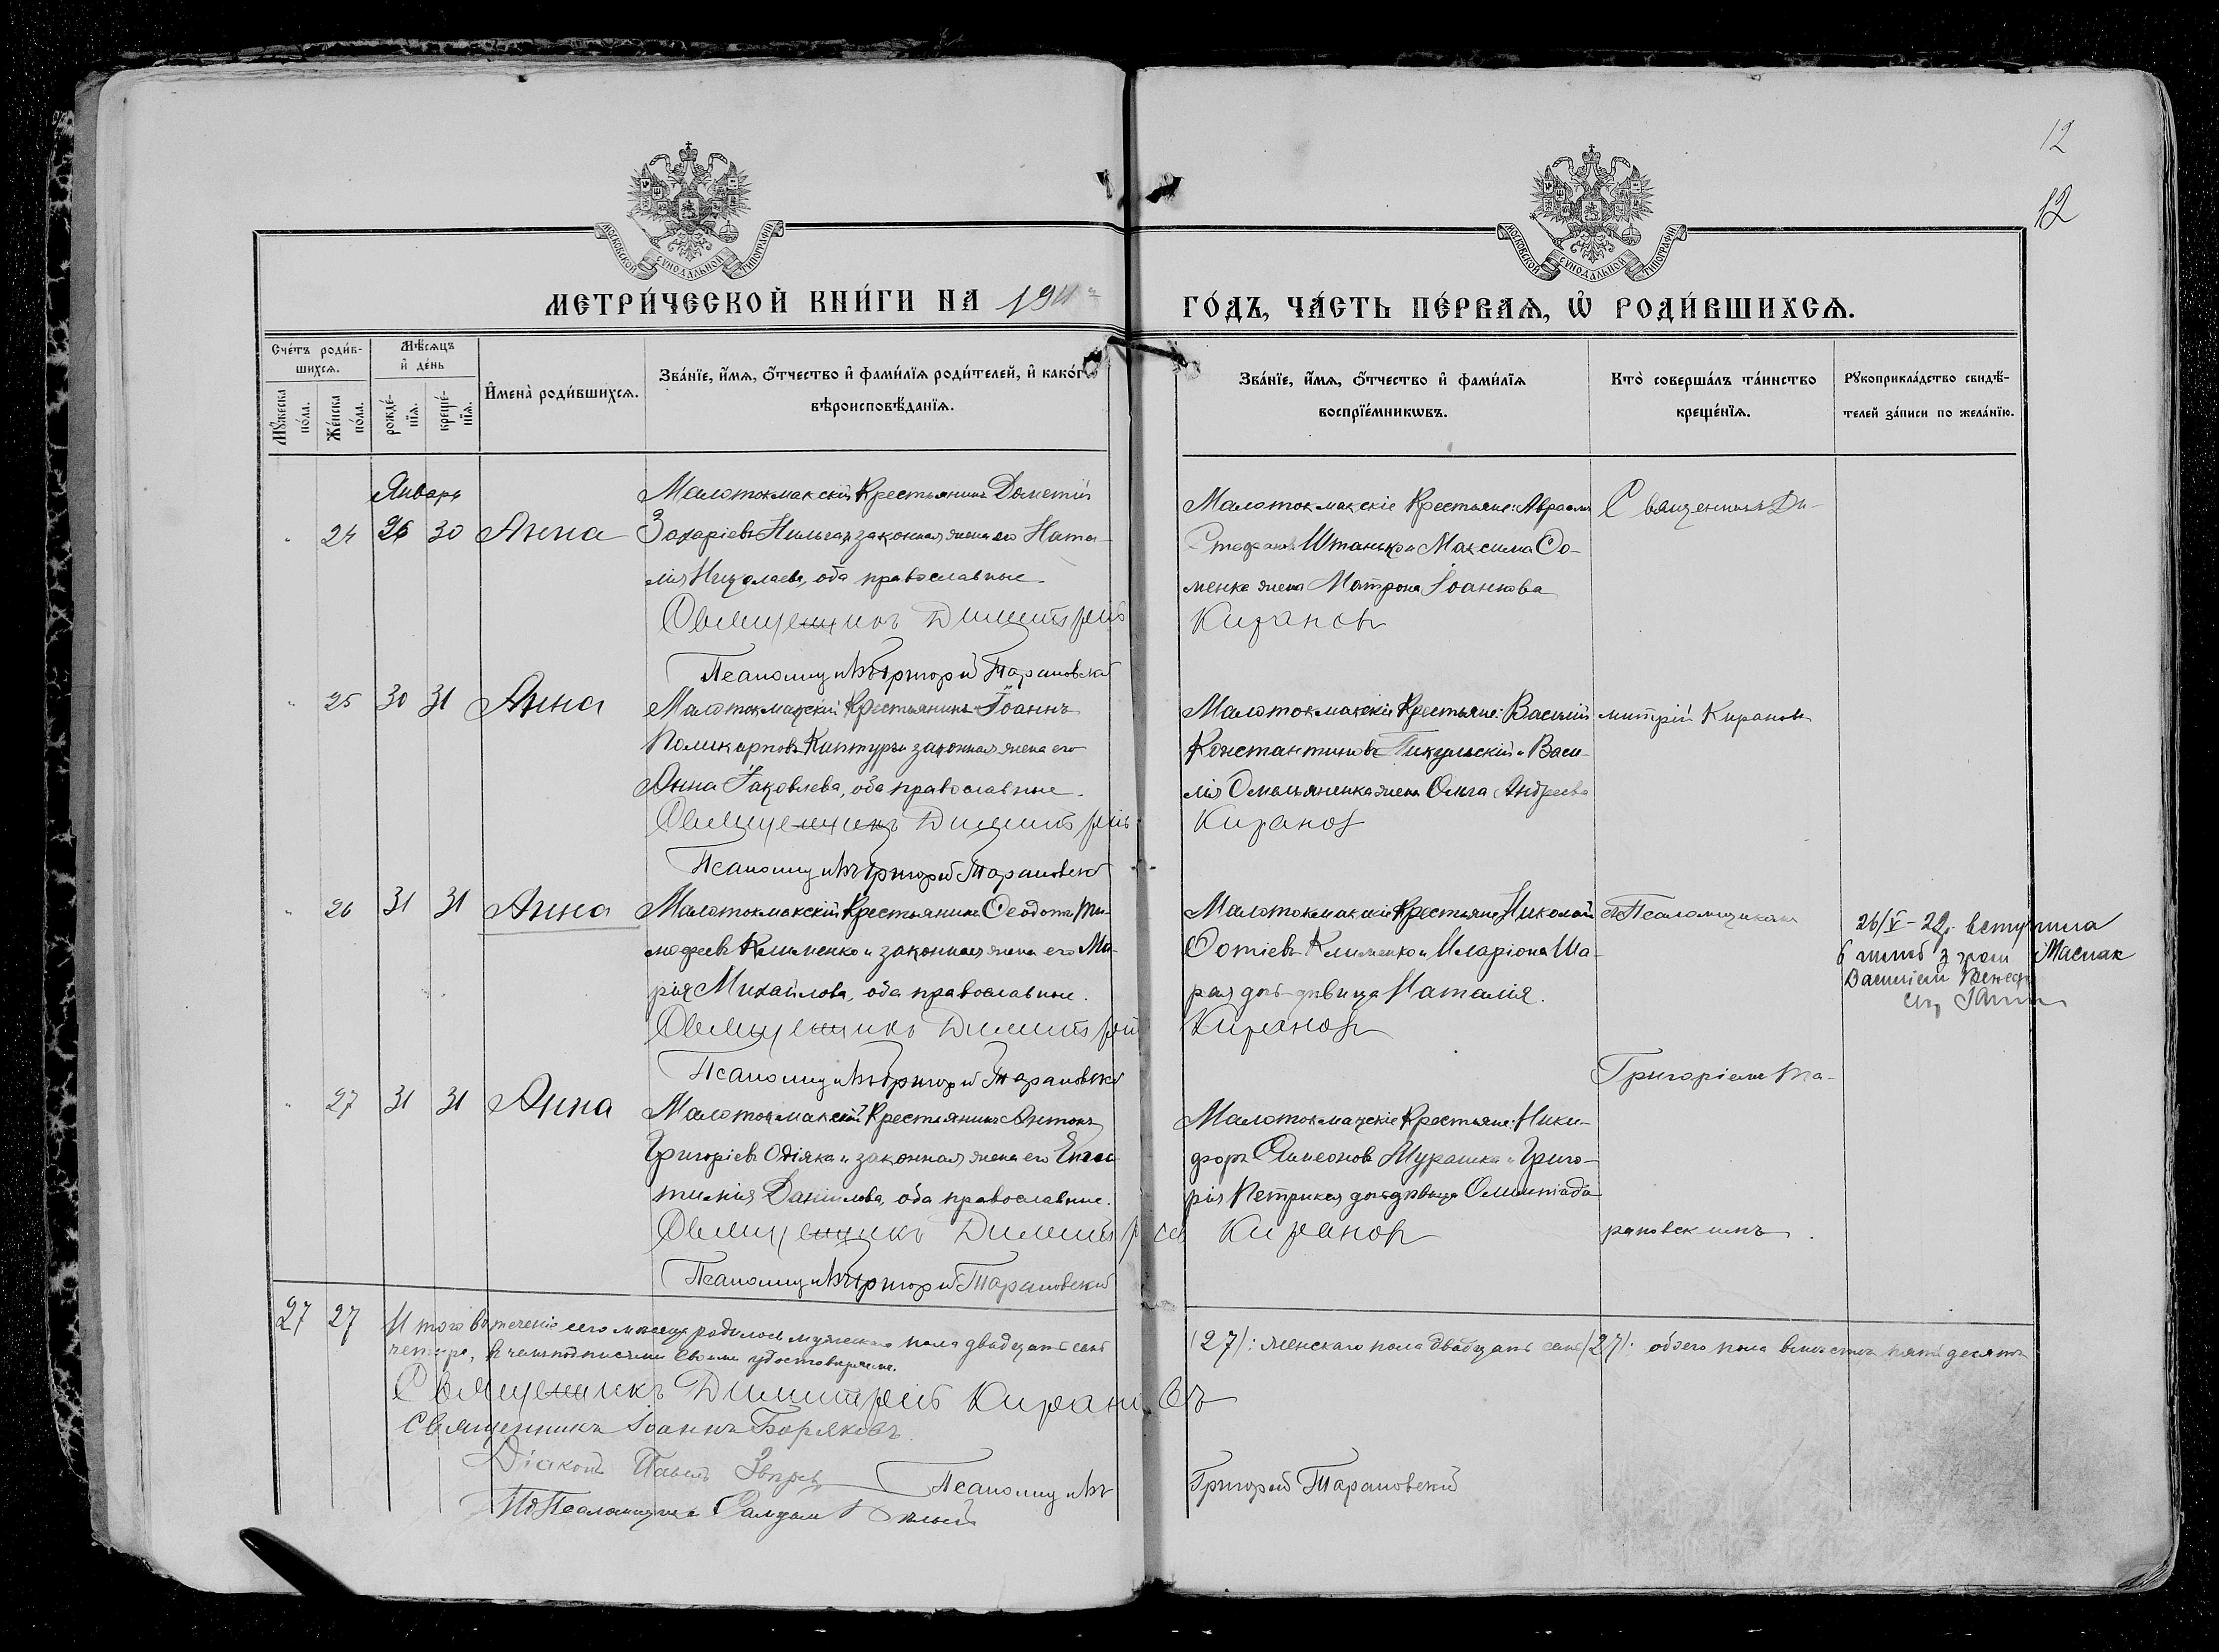 12
12
МОСКОВСКОЙ СѴНОДАЛЬНОЙ ТИПОГРАФІИ
МОСКОВСКОЙ СѴНОДАЛЬНОЙ ТИПОГРАФІИ
МЕТРИ́ЧЕСКОЙ КНИ́ГИ НА 1911
ГО́ДЪ, ЧА́СТЬ ПЕ́РВАѦ, Ѡ РОДИ́ВШИХСѦ.
Сче́тъ роди́в-
шихсѧ.
Мꙋ́жеска по́ла.
Же́нска по́ла.
Мѣ́сѧцъ
и де́нь
рожде́-
нїѧ.
креще́-
нїѧ.
Имена̀ роди́вшихсѧ.
Зва́нїе, и́мѧ, о́тчество и фами́лїѧ роди́телей, и како́гѡ
вѣроисповѣ́данїѧ.
Зва́нїе, и́мѧ, о́тчество и фами́лїѧ
воспрїе́мникѡвъ.
Кто̀ соверша́лъ та́инство
креще́нїѧ.
Рꙋкоприкла́дство свидѣ́-
телей за́писи по жела́нїю.
Январь
24 26 30 Анна
Малотокмакскій Крестьянинъ Дометій
Захаріевъ законная жена его Ната-
лія Николаева, оба православные.
Священникъ Димитрій Кирановъ
Псаломщикъ Григорій Тарановскій
Малотокмакскіе Крестьяне: Авраамъ
Стефановъ Штанько и Максима Со-
менка жена Матрона Іоаннова
Священникъ Ди-
25 30 31 Анна
Малотокмакскій Крестьянинъ Іоаннъ
Поликарповъ Кантуръ и законная жена его
Анна Іаковлева, оба православные.
Священникъ Димитрій Кирановъ
Псаломщикъ Григорій Тарановскій
Малотокмакскіе Крестьяне: Василій
Константиновъ Пикульскій и Васи-
лія Смольяненка жена Ольга Андреева
митрій Кирановъ
26 31 31 Анна
Малотокмакскій Крестьянинъ Ѳеодотъ Ти-
моѳеевъ Клименко и законная жена его Ма-
рія Михайлова, оба православные.
Священникъ Димитрій Кирановъ
Псаломщикъ Григорій Тарановскій
Малотокмакскіе Крестьяне Николай
Фотіевъ Клименко и Иларіона Ша-
рая дочь дѣвица Наталія.
съ Псаломщикомъ
26/V-29р. вступила
в шлюб з гром Маспак
Василієм
27 31 31 Анна
Малотокмакскій Крестьянинъ Антонъ
Григоріевъ Одіяка и законная жена его
Даніилова, оба православные.
Священникъ Димитрій Кирановъ
Псаломщикъ Григорій Тарановскій
Малотокмакскіе Крестьяне: Ники-
форъ Симеоновъ Мурашка и Григо-
рія Петрика дочь дѣвица Олимпіада
Григоріемъ Та-
рановскимъ.
27 27 Итого въ теченіе сего мѣсяца родилось мужескаго пола двадцать семь
(27): женскаго пола двадцать семь (27): обоего пола вмѣстѣ пятьдесятъ
четыре, въ чемъ подписями своими удостовѣряемъ.
Священникъ Димитрій Кирановъ
Священникъ Іоаннъ Боряковъ
Діаконъ Павелъ Звѣревъ
Псаломщикъ Григорій Тарановскій